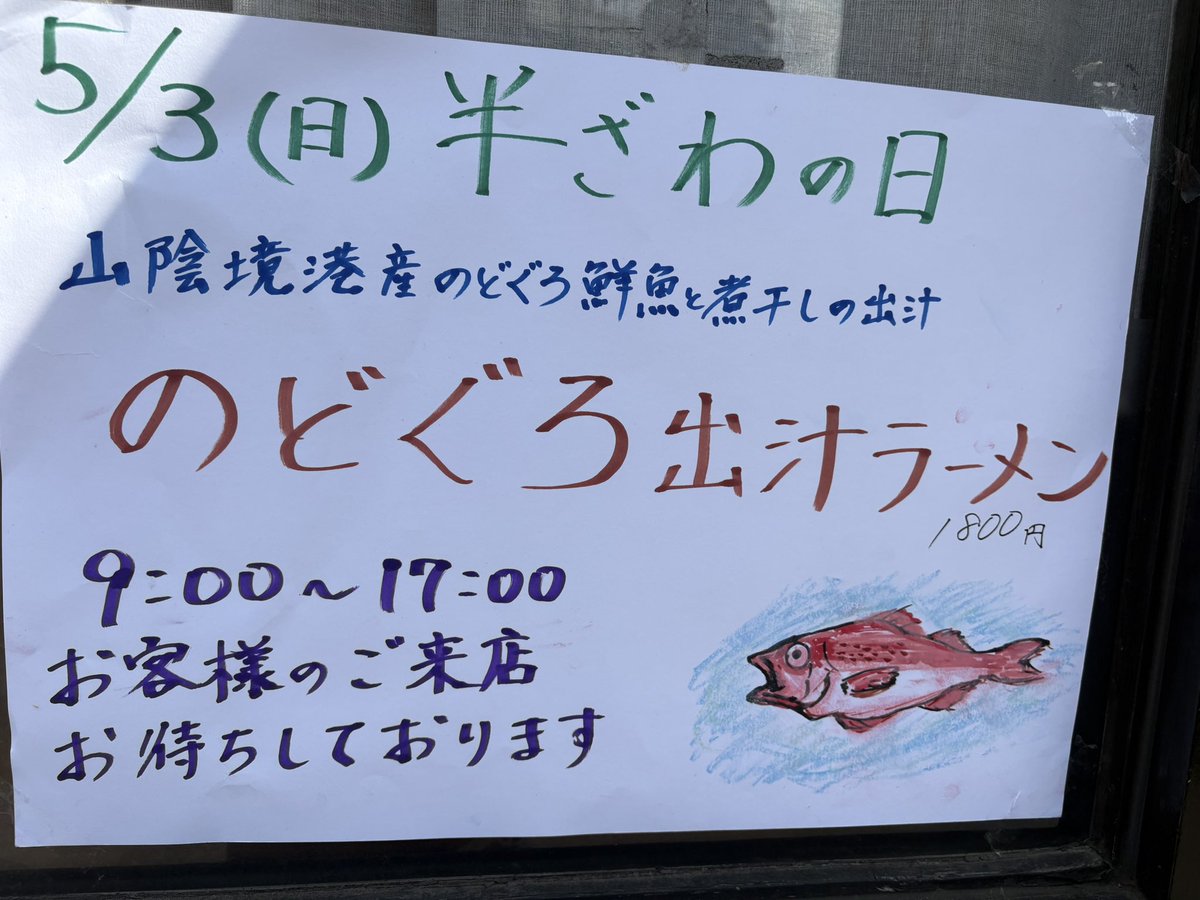 5/3(日) 半ざわの日
山陰境港産のどぐろ鮮魚と煮干しの出汁
のどぐろ出汁ラーメン
1800円
9:00〜17:00
お客様のご来店
お待ちしております